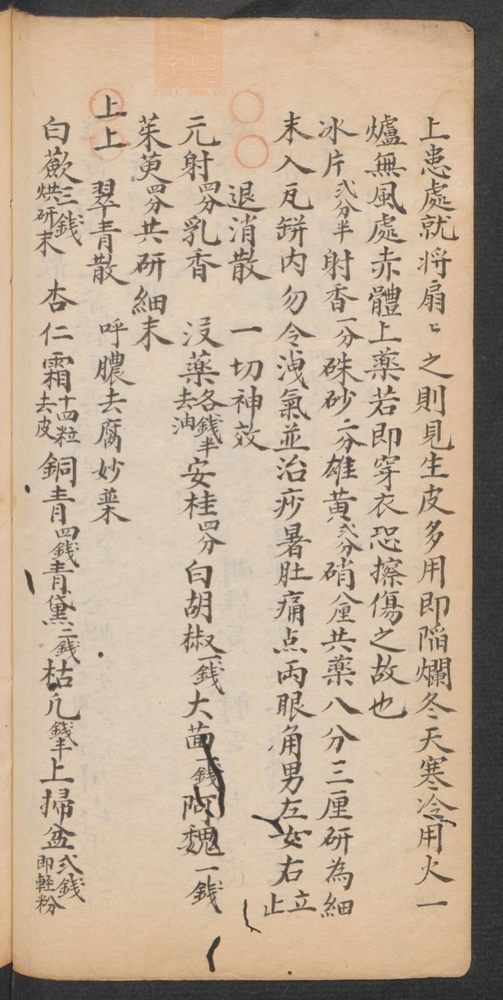 上患處就将扇〻之則見生皮多用即陷爛冬天寒冷用火一
爐無風處赤體上藥若即穿衣恐擦傷之故也
冰片弍分半射香一分硃砂二分雄黃弍分硝八厘共藥八分三厘研為細
末入瓦缾内勿令洩氣並治痧暑肚痛点両眼角男左女右立止
退消散 一切神效
元射四分乳香 沒藥各錢半去油安桂四分白胡椒一錢大茴一錢阿魏一錢
茱萸四分共研細末
上上 翠青散 呼膿去腐妙藥
白蘞三錢烘研末 杏仁霜十四粒去皮銅青四錢青黛二錢枯凢錢半上掃盆弍錢即軽粉